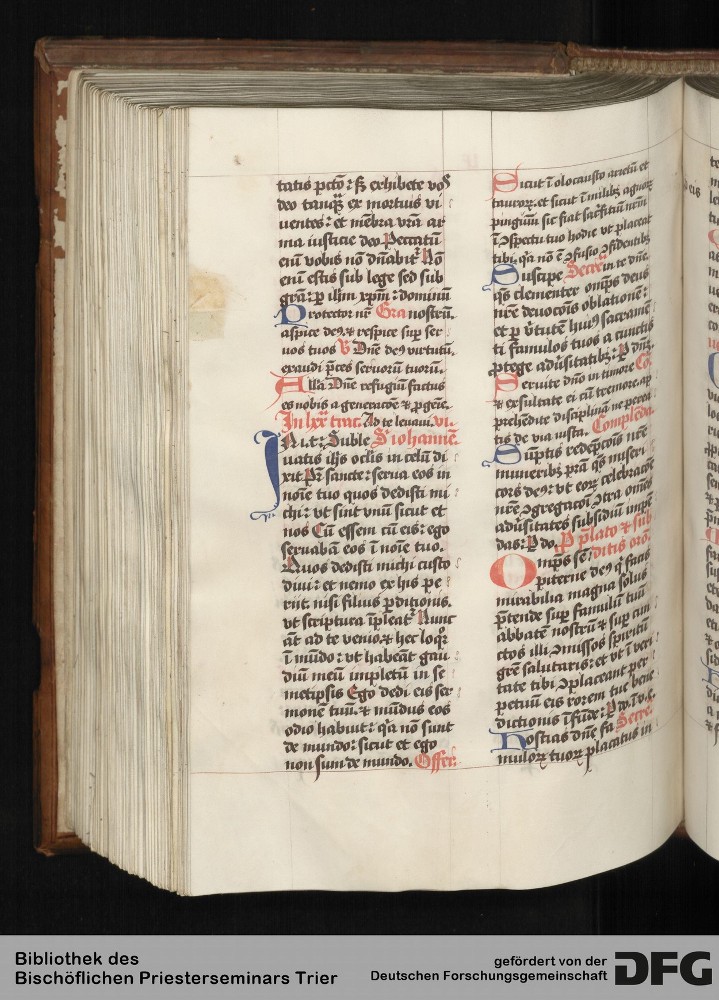 tatis pctō: sʒ exhibete vos
deo tanqȝ ex mortuis vi
uentes: et mēbra vrā ar
ma iusticie deo Peccatū
enī vobis nō dn̄abit᷑ Nō
enī estis sub lege sed sub
grā: ꝑ ihm xpm̄: dominū
Protector nr̄ Gra nostrū.
aspice deꝰ: ⁊ respice suꝑ ser
uos tuos V Dn̄e deꝰ virtutū.
exaudi p̄ces seruorū tuorū.
Alla Dn̄e refugiū factus
es nobis a generacōe ⁊ ꝓgēie.
In lxx̄ trac. Ad te leuaui. vi.
IN i.t: Suble S iohannē.
uatis ihs oclis in celū di
xit Pr̄ sancte: serua eos in
noīe tuo quos dedisti mi
chi: vt sint vnū sicut et
nos Cū essem cū eis: ego
seruabā eos ī noīe tuo.
Quos dedisti michi custo
diui: et nemo ex his pe
riit. nisi filius ꝑditionis.
vt scriptura īpleat᷑ Nunc
āt ad te venio. ⁊ hec loqr̄
ī mūdo: vt habeāt gau
diū meū impletū in se
metipsis Ego dedi eis ser
monē tuū. ⁊ mūdus eos
odio habuit: qa nō sunt
de mundo: sicut et ego
non sum de mundo. Offer.
Sicut ī olocausto arietū et
tauroꝝ. et sicut ī milibȝ agnoꝝ
pinguiū sic fiat sacᵃfitiū nrm̄
ī ꝯspectu tuo hodie vt placeat
tibi. qa nō ē ꝯfusio ꝯfidentibȝ
Suscipe Secreᵃ in te dn̄e.
qs clementer omps deus
nr̄e deuocōis oblationē:
et ꝑ v̓tutē huiꝰ sacramē
ti famulos tuos a cunctis
ꝓtege aduersitatibȝ: P dn̄ȝ.
Seruite dn̄o in timore Cō.
⁊ exsultate ei cū tremore. ap
prehēdite disciplinā ne perea
tis de via iusta. Complēda.
Sūptis redēpcōis nr̄e
muneribȝ prā qs miseri
cors deꝰ: vt eoꝝ celebracōe
nr̄e ꝯgregacōi ꝯtra omēs
aduersitates subsidiū impē
das: P do. P p̄lato ⁊ sub
Omps sē ditis oro.
piterne deꝰ q facis
mirabilia magna solus
p̄tende suꝑ famulū tuū
abbatē nostrū ⁊ suꝑ cun
ctos illi ꝯmissos spiritū
grē salutaris: et vt ī veri
tate tibi ꝯplaceant per
petuū eis rorem tue bene
dictionis īfūde: P do. ī v. ⁊.
Hostias dn̄e fa Secreᵃ.
muloꝝ tuoꝝ placatus in
Bibliothek des
Bischöflichen Priesterseminars Trier
gefördert von der
Deutschen Forschungsgemeinschaft
DFG